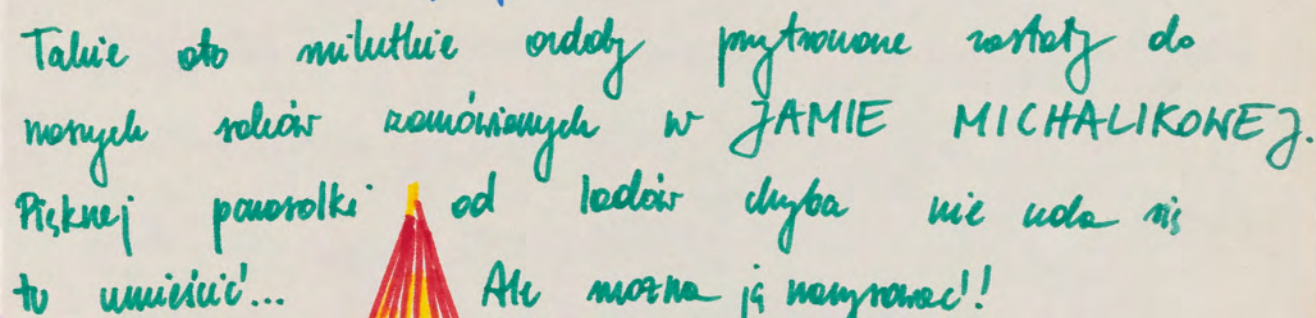 Takie oto milutkie ozdoby przytwierdzone zostały do
naszych soków zamówionych w JAMIE MICHALIKOWEJ.
Pięknej parasolki od lodów chyba nie uda się
tu umieścić... Ale można ją narysować!!